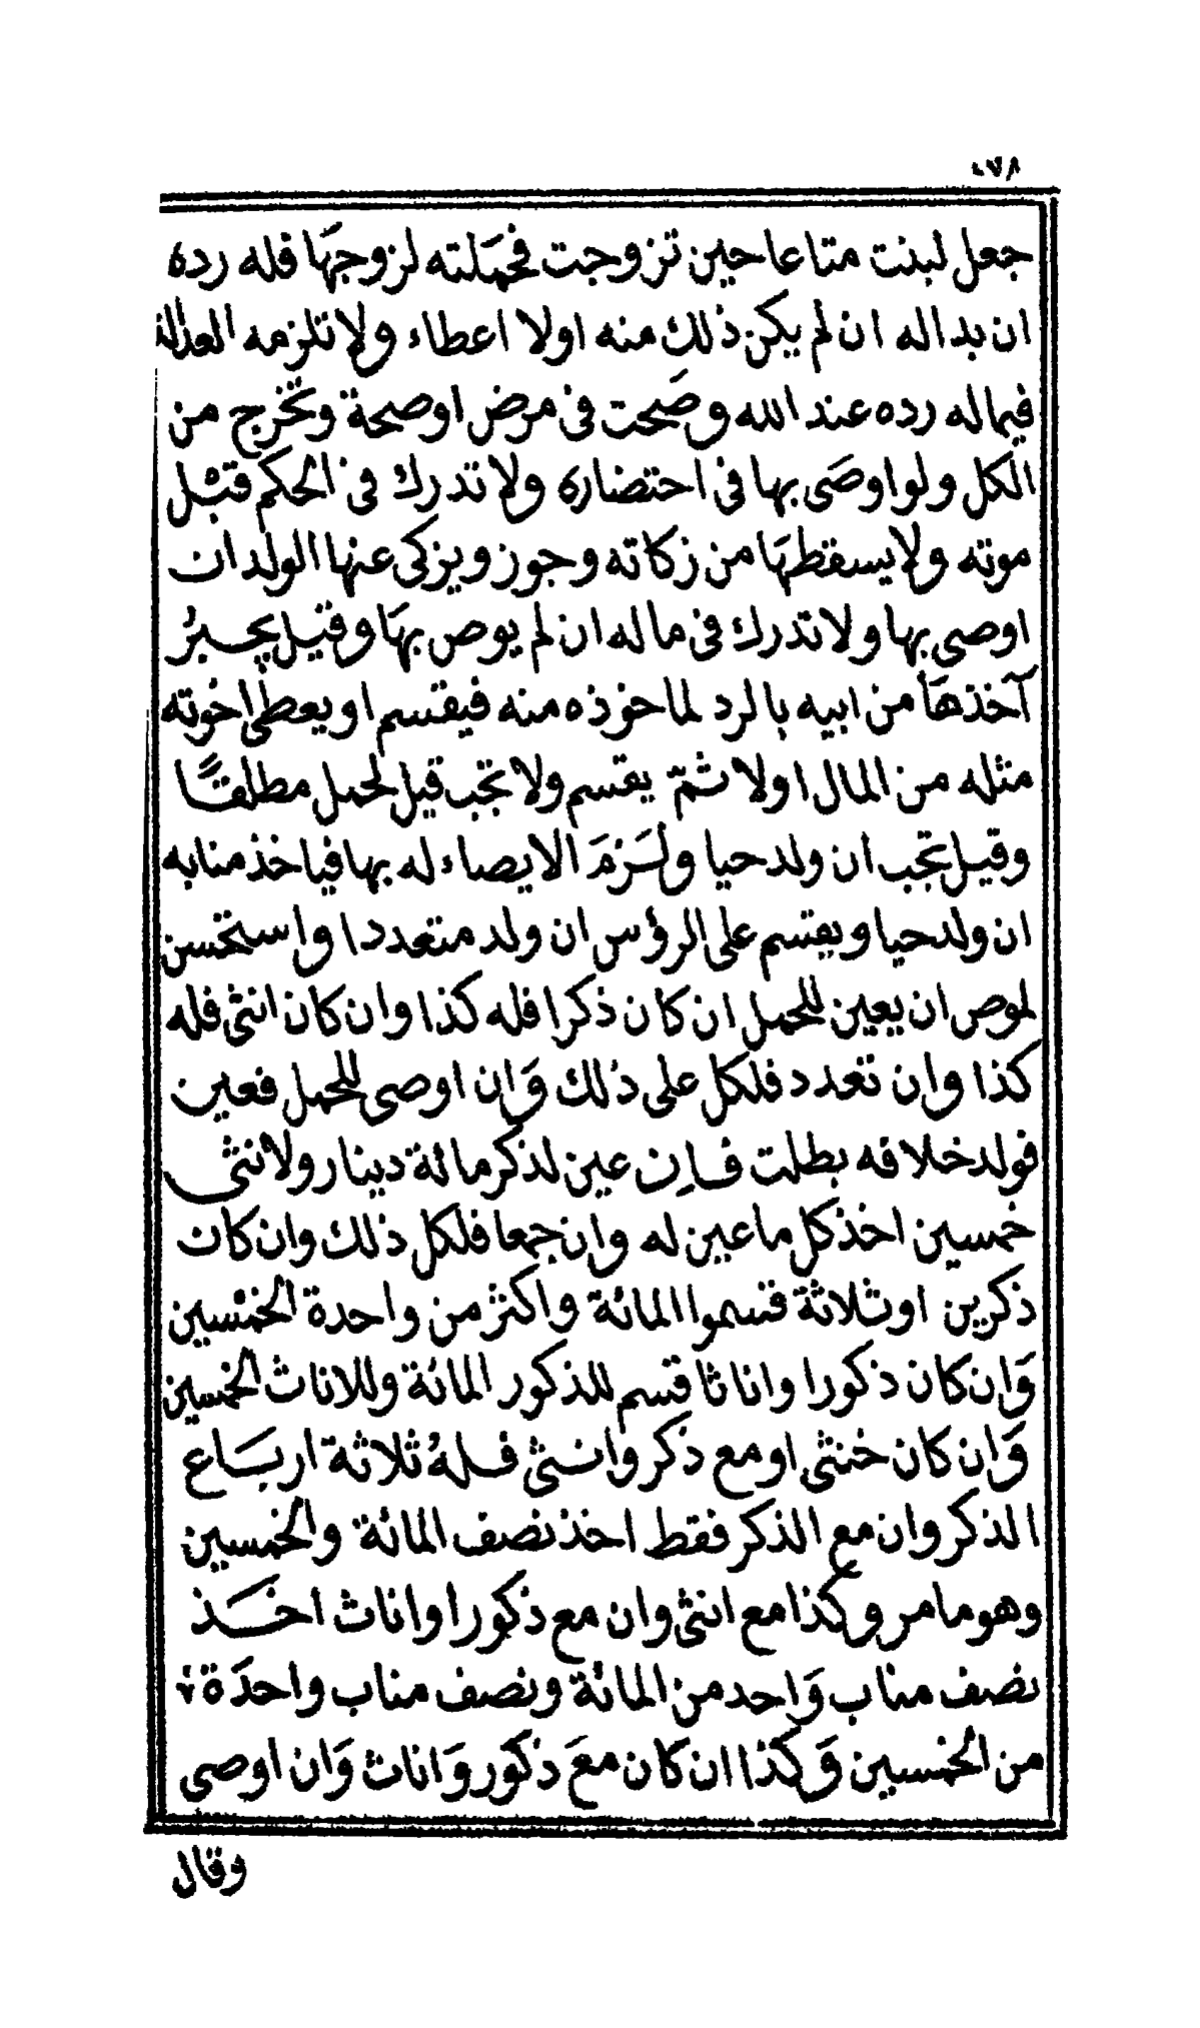 ٠٧٨
جعل لبنت متاعا حين تزوجت فحملته لزوجها فله رده
ان بداله ان لم يكن ذلك منه اولا اعطاء ولا تلزمه العدالة
فيماله رده عند الله وصحت في مرض اوصحة وتخرج من
الكل ولو اوصى بها في احتضاره ولا تدرك في الحكم قبل
موته ولا يسقطها من زكاته وجوز ويزكى عنها الولد ان
اوصى بها ولا تدرك في ماله ان لم يوص بها وقيل يجبر
آخذها من ابيه بالرد لماخوذه منه فيقتسم او يعطى اخوته
مثله من المال اولا ثمّ يقتسم ولا تجب قيل لحمل مطلقًا
وقيل تجب ان ولد حيا ولَزمَ الايصاء له بها فياخذ منابه
ان ولد حيا ويقتسم على الرؤس ان ولد متعددا واستحسن
لموص ان يعين للحمل ان كان ذكرا فله كذا وان كان انثى فله
كذا وان تعدد فلكل على ذلك وَان اوصى للحمل فعين
فولد خلافه بطلت فاِن عين لذكر مائة دينار ولانثى
خمسين اخذ كل ماعين له وان جمعا فلكل ذلك وان كان
ذكرين اوثلاثة قسموا المائة واكثر من واحدة الخمسين
وَان كان ذكورا واناثا قسم للذكور المائة وللاناث الخمسين
وَان كان خنثى اومع ذكر وانثى فلهُ ثلاثة ارباع
الذكر وان مع الذكر فقط اخذ نصف المائة والخمسين
وهو مامر وكذا مع انثى وان مع ذكورا واناث اخَذ
نصف مناب وَاحد من المائة ونصف مناب واحدَة
من الخمسين وَكذا ان كان معَ ذكور وَاناث وَان اوصى
وقال